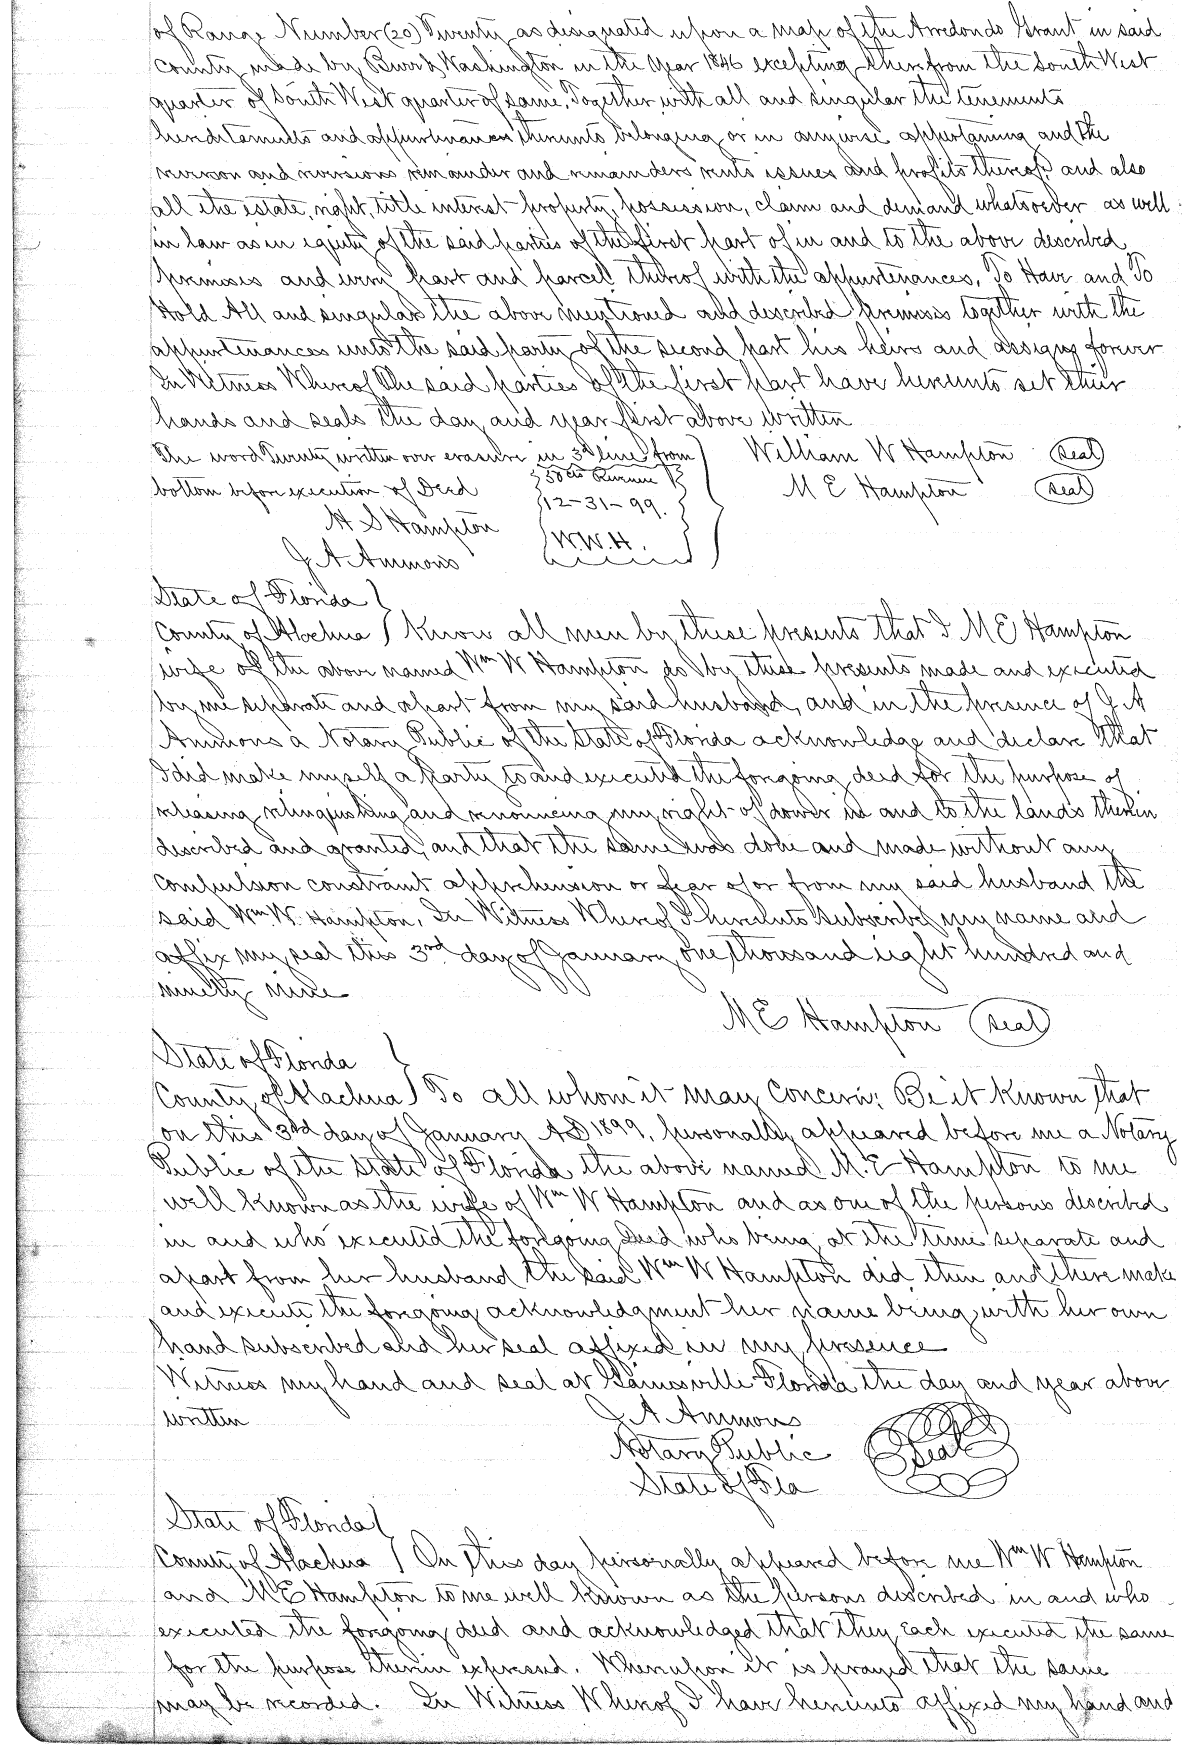 of Range Number (20) Twenty as designated upon a map of the Arredondo Grant in said
County made by Burr & Washington in the year 1846 excepting therefrom the South West
quarter of South West quarter of same. Together with all and singular the tenements
hereditaments and appurtenances thereunto belonging or in anywise appertaining and the
reversion and reversions remainder and remainders rents issues and profits thereof and also
all the estate, right, title interest property, possession, claim and demand whatsoever as well
in law as in equity of the said parties of the first part of in and to the above described
premises and every part and parcel thereof with the appurtenances. To Have and To
Hold All and singular the above mentioned and described premises together with the
appurtenances unto the said party of the second part his heirs and assigns forever
In Witness Whereof the said parties of the first part have hereunto set their
hands and seals the day and year first above written
The word Twenty written over erasure in 3d line from } William W Hampton (seal)
bottom before execution of Deed { 50 cts Revenue } M E Hampton (seal)
H S Hampton { 12-31-99.
J A Ammons { W.W.H.
State of Florida }
County of Alachua } Know all men by these presents that I M E Hampton
wife of the above named Wm W Hampton do by these presents made and executed
by me separate and apart from my said husband, and in the presence of J. A
Ammons a Notary Public of the State of Florida acknowledge and declare that
I did make myself a party to and executed the forgoing deed for the purpose of
releasing relinquishing and renouncing my right of dower in and to the lands therein
described and granted, and that the same was done and made without any
compulsion constraint apprehension or fear of or from my said husband the
said Wm. W. Hampton. In Witness Whereof I hereunto subscribe my name and
affix my seal this 3rd day of January one thousand eight hundred and
ninety nine
M E Hampton (seal)
State of Florida }
County of Alachua } To all whom it may Concern: Be it Known that
on this 3rd day of January AD 1899, personally appeared before me a Notary
Public of the State of Florida the above named M. E Hampton to me
well known as the wife of Wm W Hampton and as one of the persons described
in and who executed the forgoing Deed who being at the time separate and
apart from her husband the said Wm W Hampton did then and there make
and execute the forgoing acknowledgment her name being with her own
hand subscribed and her seal affixed in my presence
Witness my hand and seal at Gainesville Florida the day and year above
written J A Ammons
Notary Public (Seal)
State of Fla
State of Florida }
County of Alachua } On this day personally appeared before me Wm W Hampton
and M E Hampton to me well known as the persons described in and who
executed the forgoing deed and acknowledged that they Each executed the same
for the purpose therein expressed. Whereupon it is prayed that the same
may be recorded. In Witness Whereof I have hereunto affixed my hand and